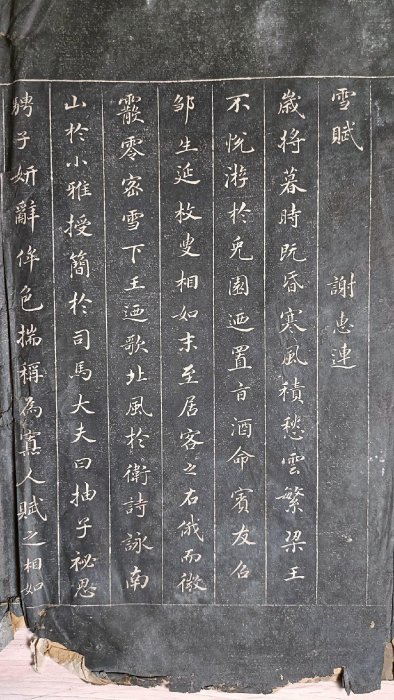 雪賦 謝惠連
歲將暮時既昏寒風積愁雲繁梁王
不悅游於兔園迺置旨酒命賓友召
鄒生延枚叟相如末至居客之右俄而微
霰零密雪下王迺歌北風於衛詩詠南
山於小雅授簡於司馬大夫曰抽子祕思
騁子妍辭侔色揣稱為寡人賦之相如